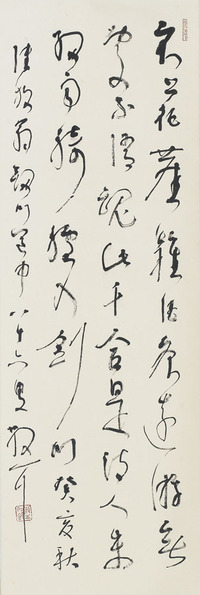 衣上征塵雜酒痕遠遊無
處不消魂此身合是詩人未
細雨騎驢入劍門癸亥秋
陸放翁劍門道中八十六叟散耳